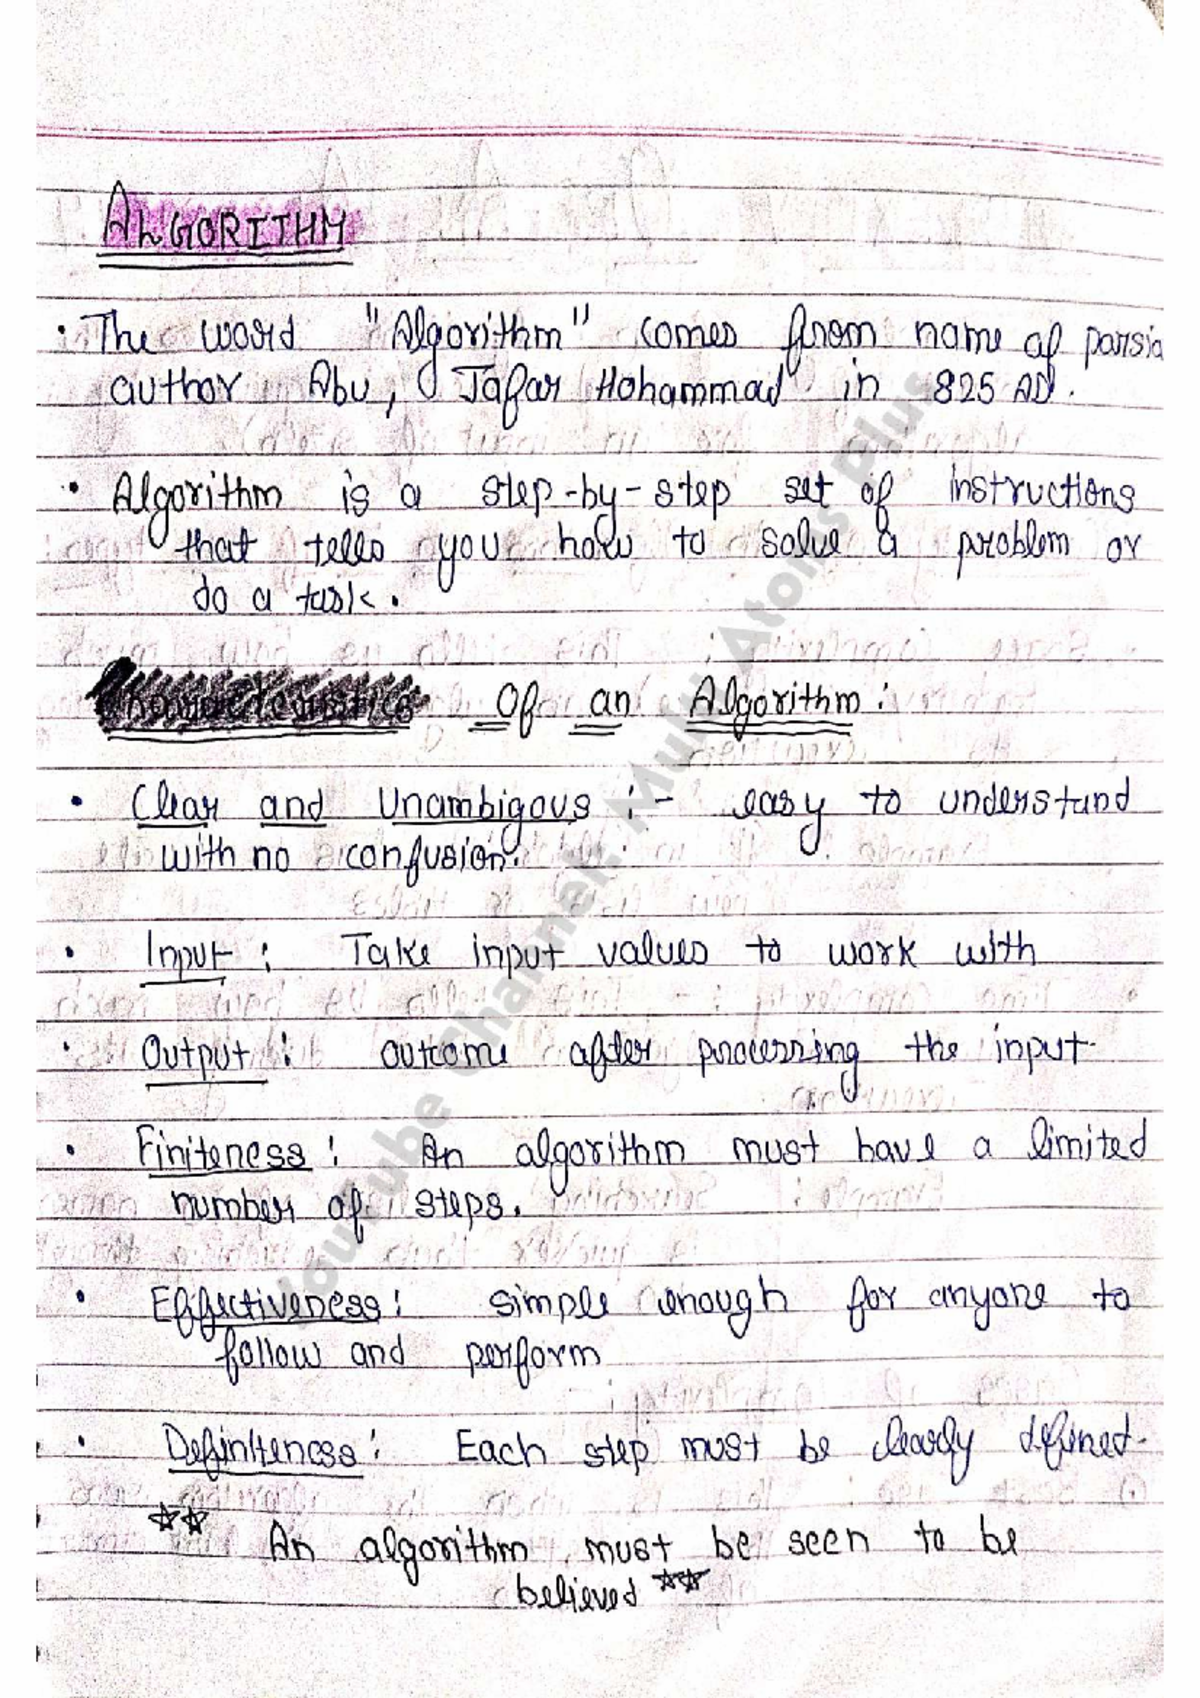 ALGORITHM
• The word "Algorithm" comes from name of parsia
author Abu, Jafar Mohammad in 825 AD.
• Algorithm is a step-by-step set of instructions
that tells you how to solve a problem or
do a task.
Characteristics Of an Algorithm :
• Clear and Unambigous :- easy to understand
with no confusion.
• Input : Take input values to work with
• Output : outcome after processing the input.
• Finiteness : An algorithm must have a limited
number of steps.
• Effectiveness : simple enough for anyone to
follow and perform
• Definiteness : Each step must be clearly defined.
• ☆☆ An algorithm must be seen to be
believed ☆☆
YouTube Channel: Multi Atoms Plus